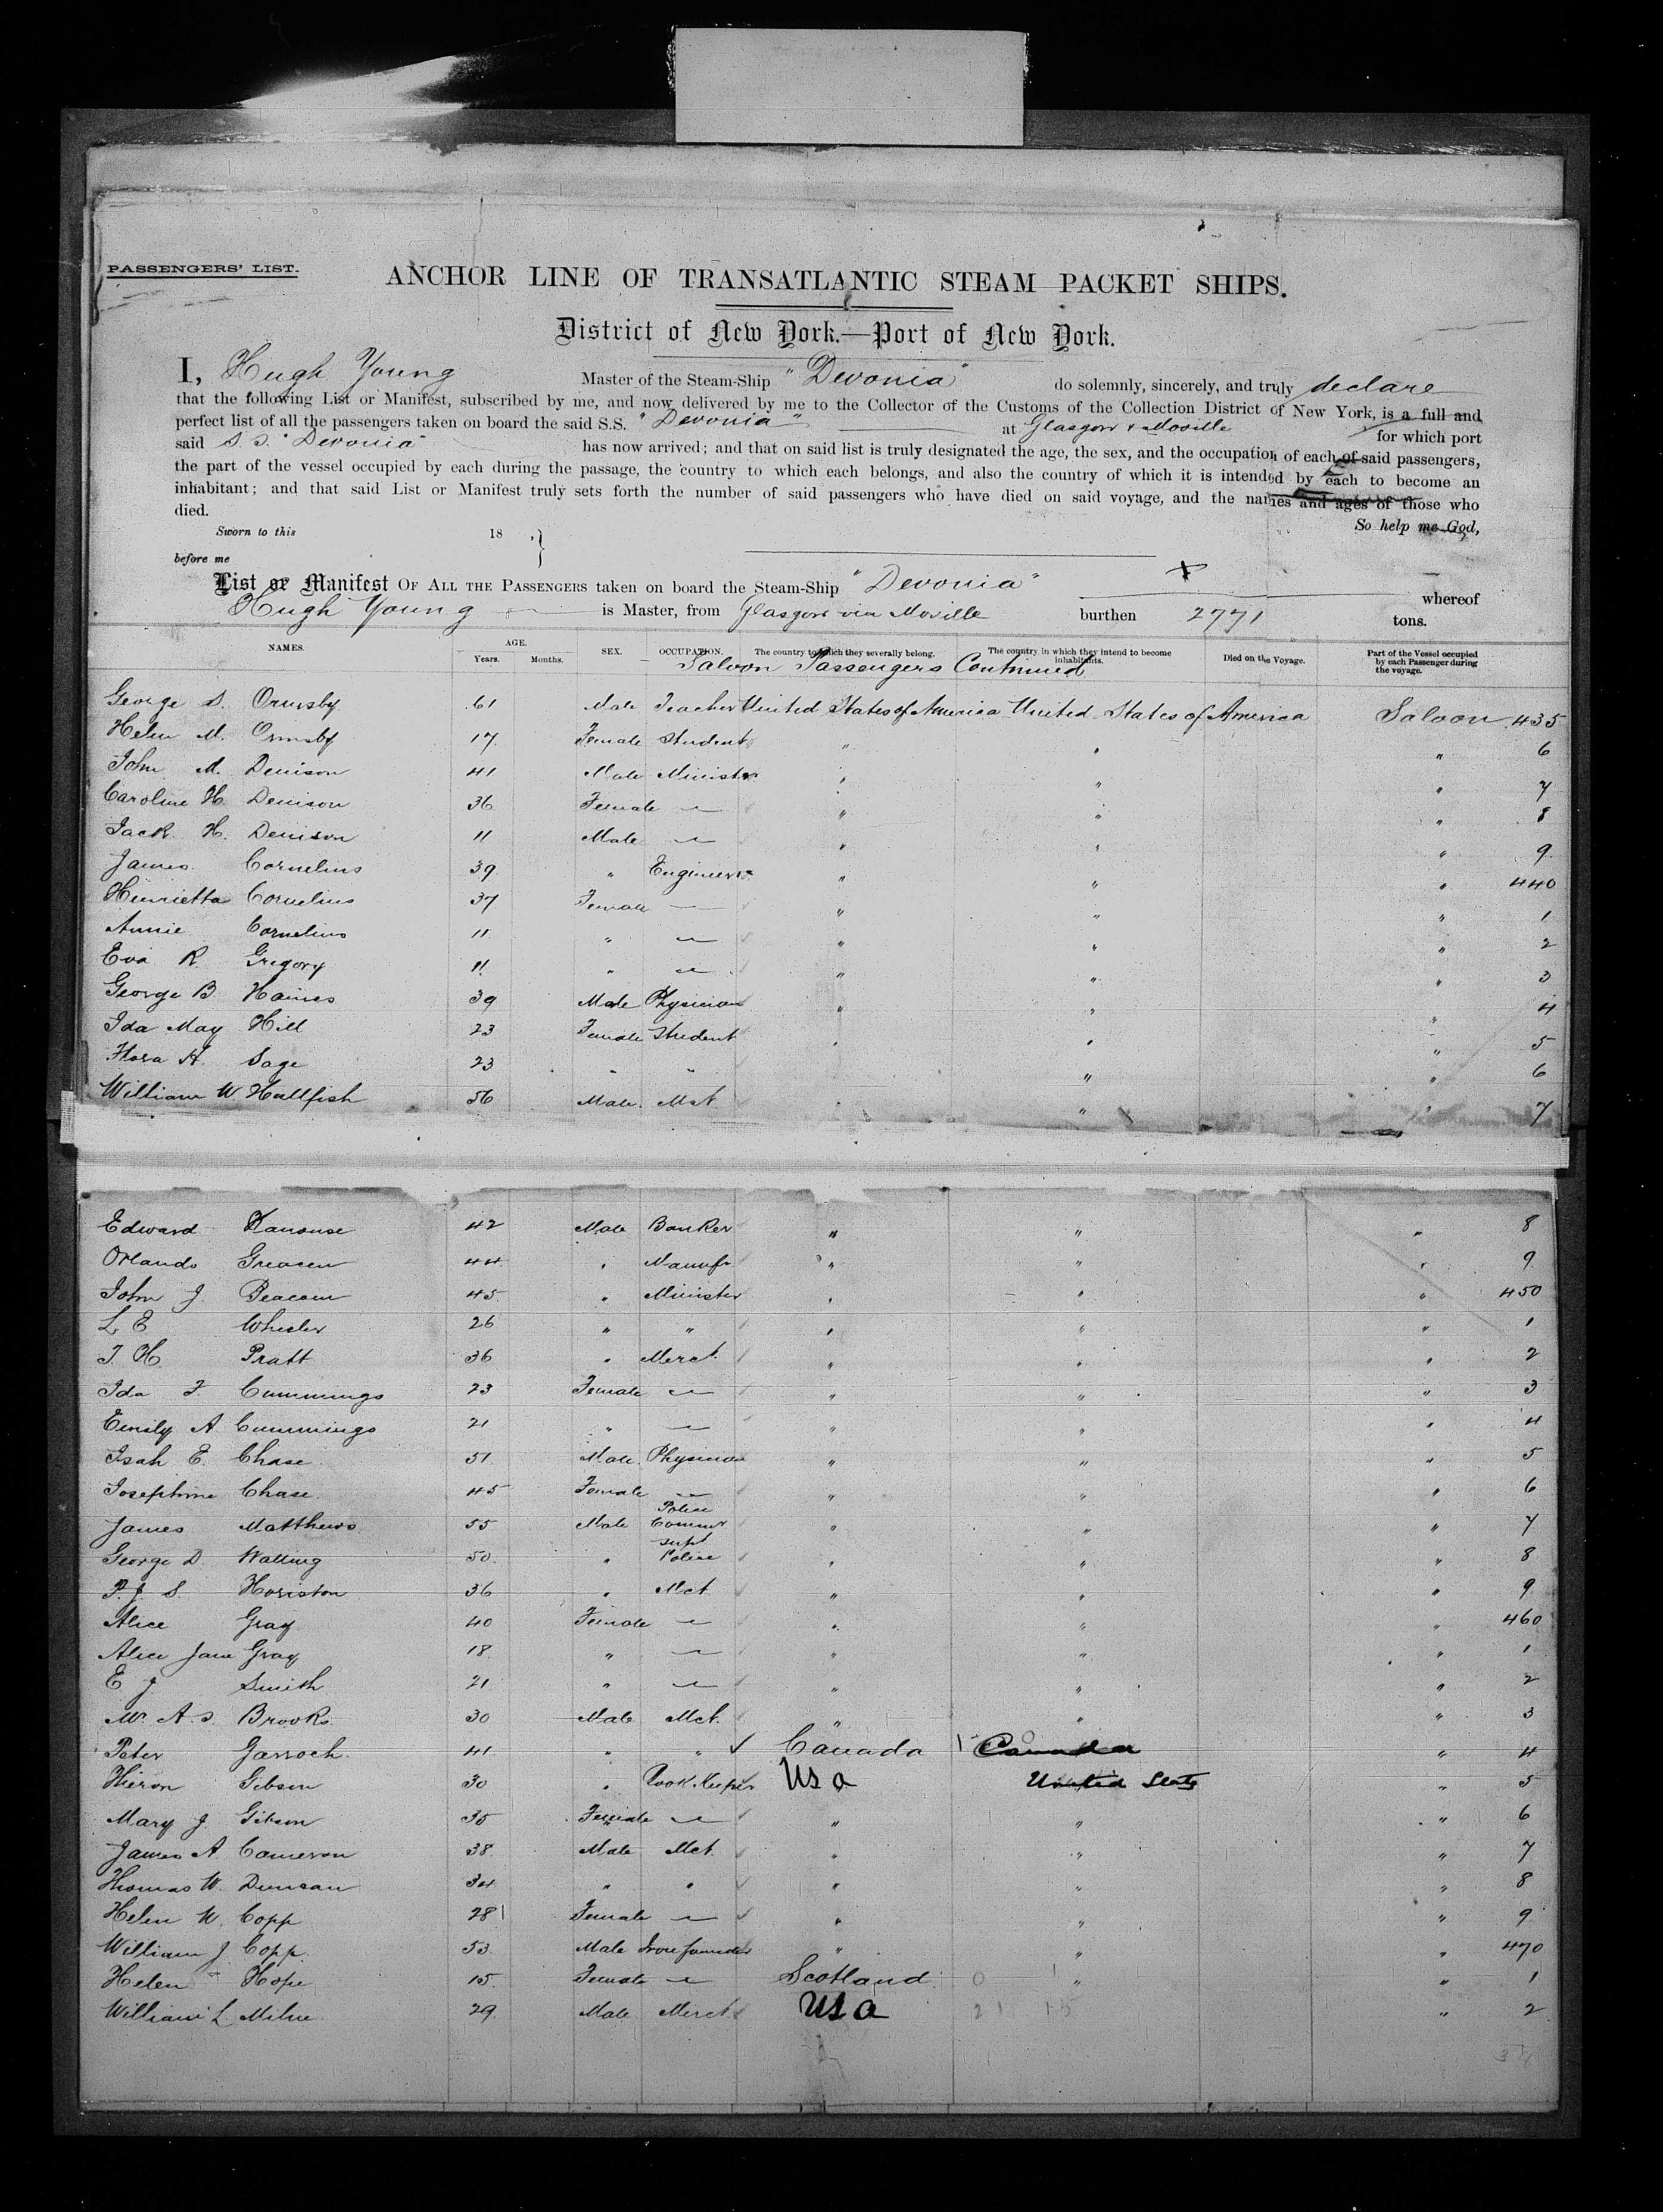 PASSENGERS' LIST.
ANCHOR LINE OF TRANSATLANTIC STEAM PACKET SHIPS.
District of New York.—Port of New York.
I, Hugh Young Master of the Steam-Ship "Devonia" do solemnly, sincerely, and truly declare
that the following List or Manifest, subscribed by me, and now delivered by me to the Collector of the Customs of the Collection District of New York, is a full and
perfect list of all the passengers taken on board the said S.S. "Devonia" at Glasgow & Moville for which port
said S S. "Devonia" has now arrived; and that on said list is truly designated the age, the sex, and the occupation of each of said passengers,
the part of the vessel occupied by each during the passage, the country to which each belongs, and also the country of which it is intended by each to become an
inhabitant; and that said List or Manifest truly sets forth the number of said passengers who have died on said voyage, and the names and ages of those who
died. So help me God,
Sworn to this 18 ,}
before me
List or Manifest OF ALL THE PASSENGERS taken on board the Steam-Ship "Devonia" whereof
Hugh Young is Master, from Glasgow via Moville burthen 2771 tons.
NAMES. AGE. Years. Months. SEX. OCCUPATION. The country to which they severally belong. The country in which they intend to become inhabitants. Died on the Voyage. Part of the Vessel occupied by each Passenger during the voyage.
Saloon Passengers Continued
George S. Ormsby 61 Male Teacher United States of America United States of America Saloon 435
Helen M. Ormsby 17 Female Student " " " 6
John M. Denison 41 Male Minister " " " 7
Caroline H. Denison 36 Female — " " " 8
Jack H. Denison 11 Male — " " " 9
James Cornelius 39 " Engineer " " " 440
Henrietta Cornelius 37 Female — " " " 1
Annie Cornelius 11 " — " " " 2
Eva R. Gregory 11 " — " " " 3
George B Haines 39 Male Physician " " " 4
Ida May Hill 23 Female Student " " " 5
Flora A. Sage 23 " " " " 6
William W Hallfish 56 Male Mct " " " 7
Edward Kanouse 42 Male Banker " " " 8
Orlando Greacen 44 " Manufr " " " 9
John J. Beacom 45 " Minister " " " 450
L E Wheeler 26 " " " " " 1
J. H. Pratt 36 " Merct. " " " 2
Ida F. Cummings 23 Female — " " " 3
Emily A Cummings 21 " — " " " 4
Isah E. Chase 51 Male Physician " " " 5
Josephine Chase 45 Female — " " " 6
James Matthews 55 Male Police Commr " " " 7
George D. Walling 50 " Supt Police " " " 8
P. J. S. Horiston 36 " Mct " " " 9
Alice Gray 40 Female — " " " 460
Alice Jane Gray 18 " — " " " 1
E J Smith 21 " — " " " 2
Mr A. S. Brooks 30 Male Mct. " " " 3
Peter Garroch 41 " " Canada Canada " 4
Hieron Gibson 30 " Book Keeper USa United States " 5
Mary J Gibson 35 Female — " " " 6
James A Cameron 38 Male Mct. " " " 7
Thomas W. Duncan 34 " " " " " 8
Helen W. Copp 28 Female — " " " 9
William J Copp 53 Male Iron founder " " " 470
Helen Hope 15 Female — Scotland 0 1 " " 1
William L Milne 29 Male Merct. USa 21 15 " 2